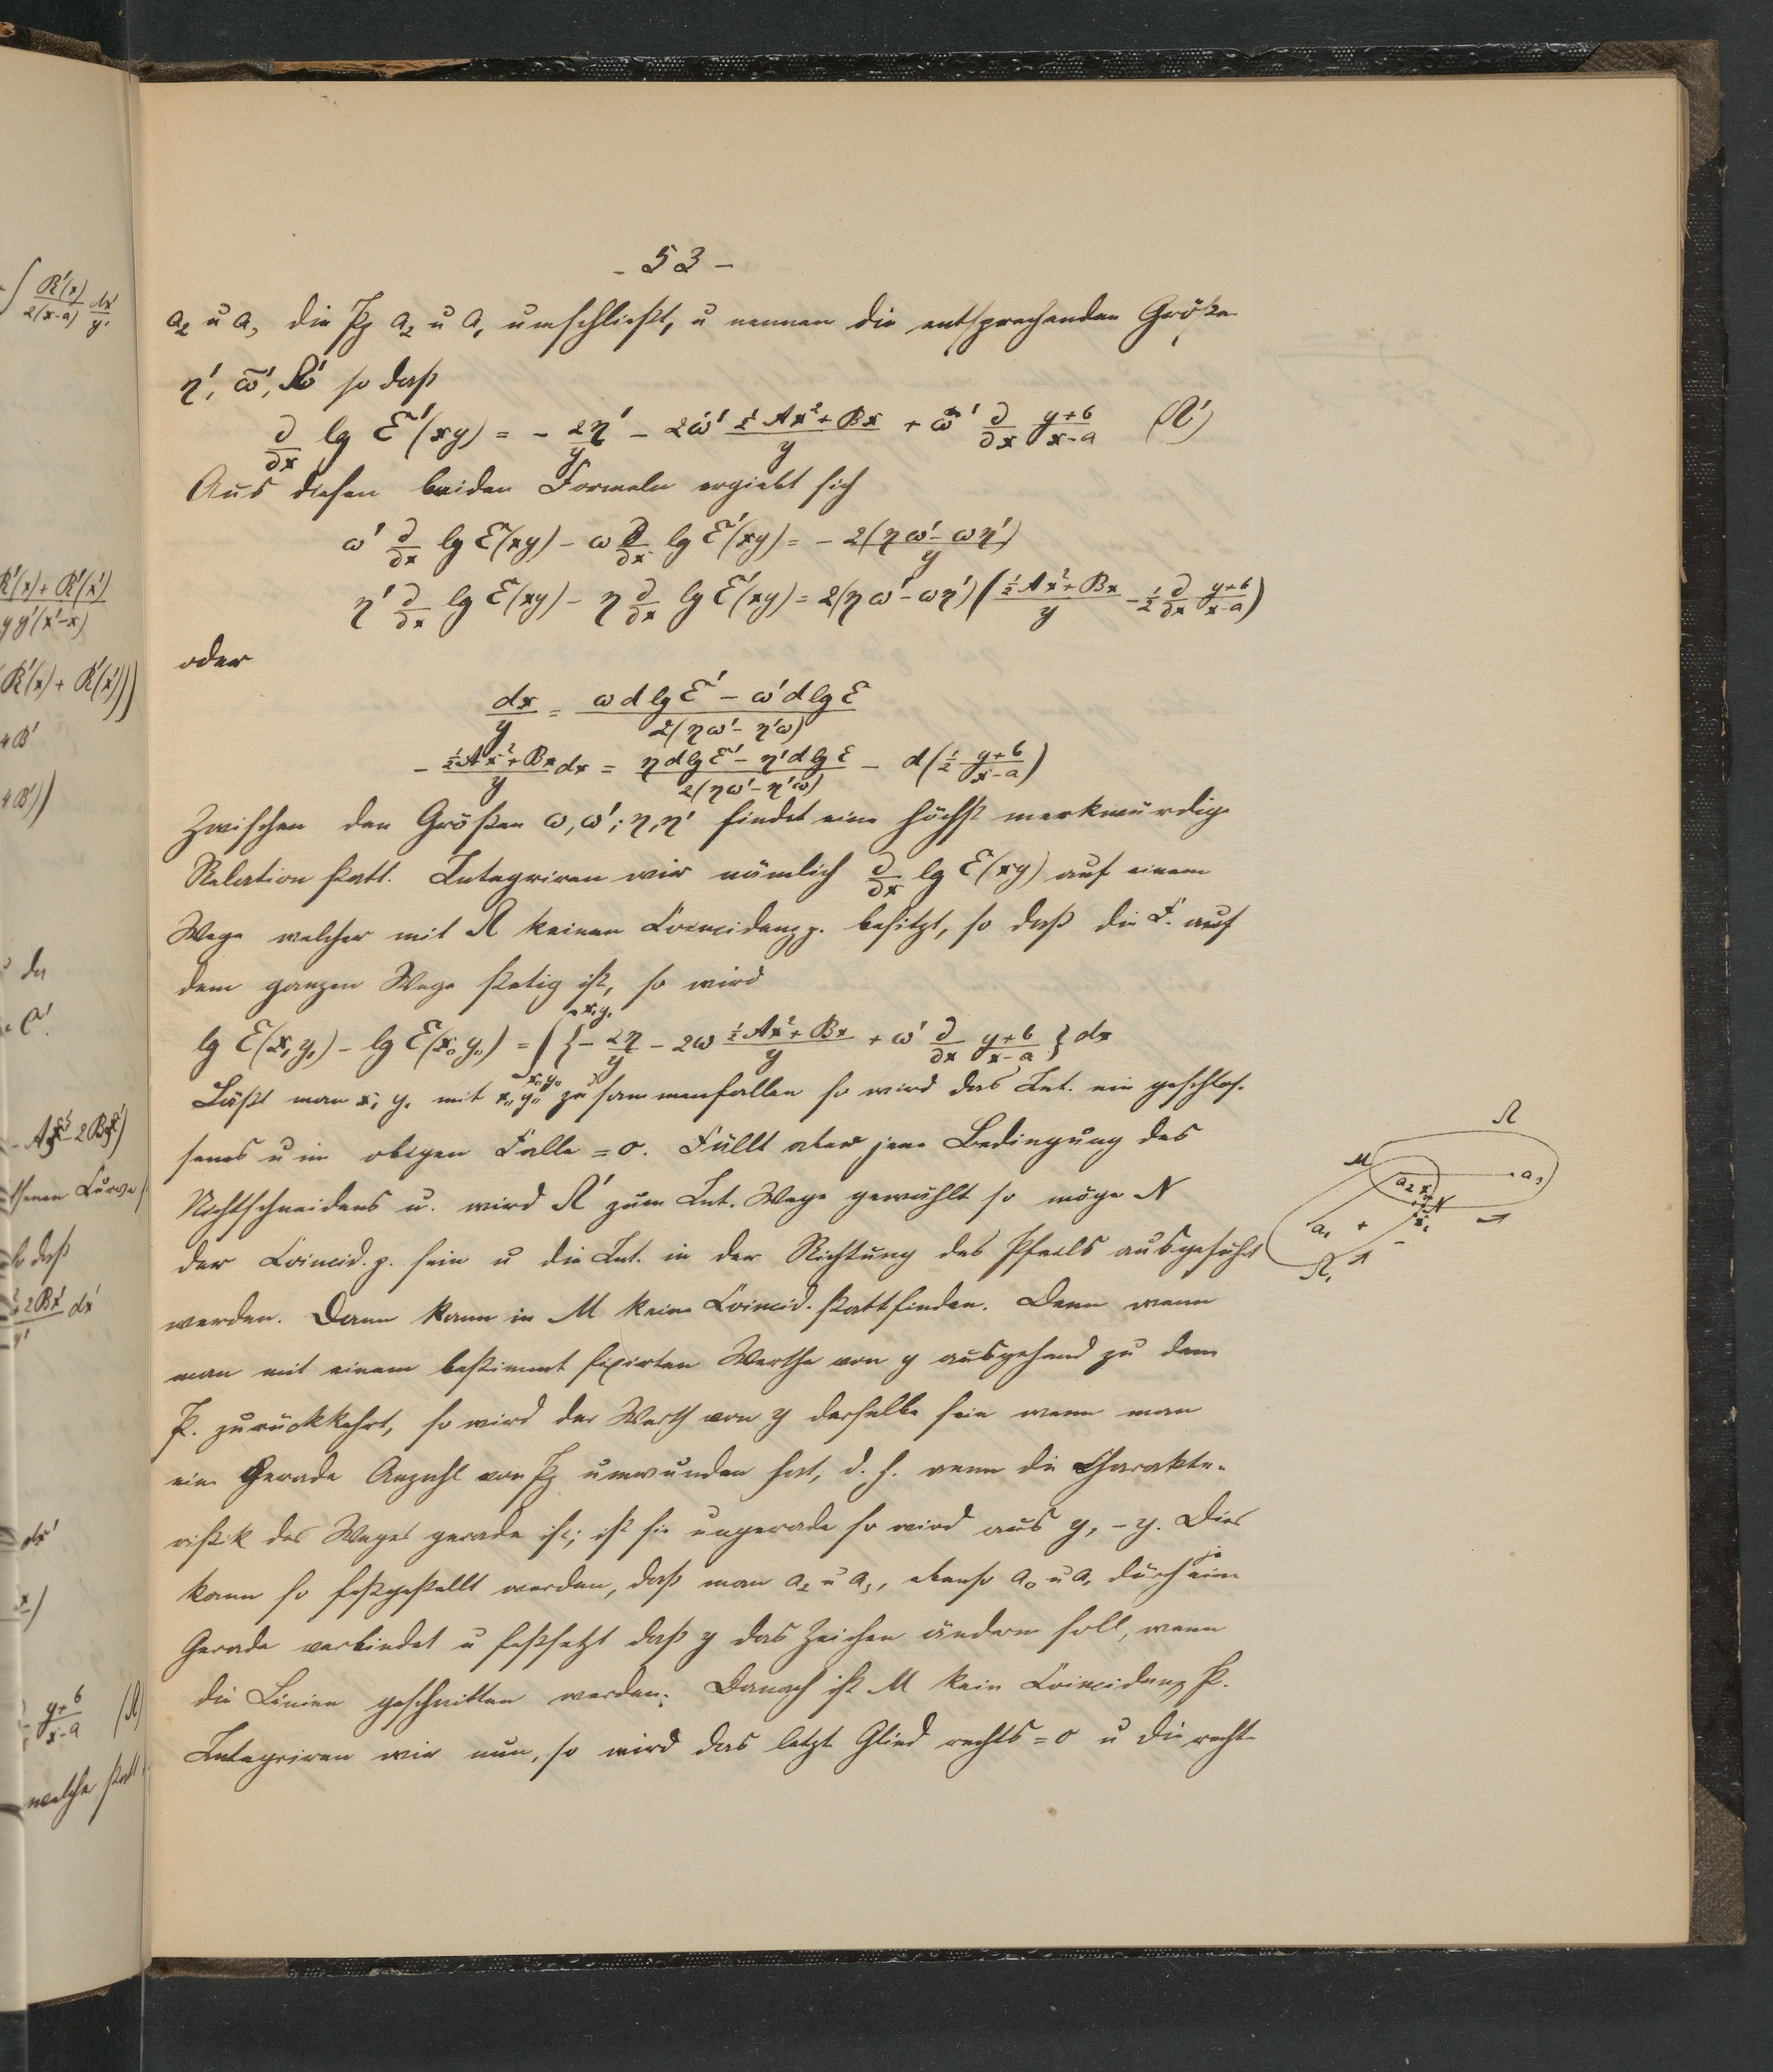 - 53 -
a₂ u a₃ die Pkt a₂ u a₁ umschließt, u nennen die entsprechenden Größen
η', ω̄', 𝔎' so daß
∂/∂x lg E'(xy) = - 2η'/y - 2ω' (½Ax²+Bx)/y + ω' ∂/∂x (y+b)/(x-a) (𝔎')
Aus diesen beiden Formeln ergiebt sich
ω' ∂/∂x lg E(xy) - ω ∂/∂x lg E'(xy) = - 2(ηω'-ωη')/y
η' ∂/∂x lg E(xy) - η ∂/∂x lg E'(xy) = 2(ηω'-ωη') ((½Ax²+Bx)/y - ½ ∂/∂x (y+b)/(x-a))
oder
dx/y = (ω d lg E' - ω' d lg E)/(2(ηω'-η'ω))
- (½Ax²+Bx)/y dx = (η d lg E' - η' d lg E)/(2(ηω'-η'ω)) - d(½ (y+b)/(x-a))
Zwischen den Größen ω, ω'; η, η' findet eine höchst merkwürdige
Relation statt. Integriren wir nämlich ∂/∂x lg E(xy) auf einem
Wege welcher mit 𝔎 keinen Coincidenzp. besitzt, so daß die F. auf
dem ganzen Wege stetig ist, so wird
lg E(x₁y₁) - lg E(x₀y₀) = ∫_{x₀y₀}^{x₁y₁} {- 2η/y - 2ω (½Ax²+Bx)/y + ω' ∂/∂x (y+b)/(x-a)} dx
Läßt man x₁ y₁ mit x₀, y₀ zusammenfallen so wird das Int. ein geschlos-
senes u im obigen Falle = 0. Fällt aber jene Bedingung des
Nichtschneidens u. wird 𝔎' zum Int. Wege gewählt so möge N
der Coincid. p. sein u die Int. in der Richtung des Pfeils ausgeführt
werden. Dann kann in M keine Coincid. stattfinden. Denn wenn
man mit einem bestimmt fixirten Werthe von y ausgehend zu dem
Pkt. zurückkehrt, so wird der Werth von y derselbe sein wenn man
eine Gerade Anzahl von Pkt umwunden hat, d. h. wenn die Charakte-
ristik des Weges gerade ist; ist sie ungerade so wird aus y, -y. Dies
kann so festgestellt werden, daß man a₂ u a₃, ebenso a₀ u a₁ durch je eine
Gerade verbindet u festsetzt daß y das Zeichen ändern soll, wenn
die Linien geschnitten werden. Danach ist M kein Coincidenz P.
Integriren wir nun, so wird das letzte Glied rechts = 0 u die rechte
𝔎
M
a₃
a₂ x₀
N
x₁
a₁ + -
𝔎₁
∫ R'(x)/2(x-a) dx/y'
R'(x)+R'(x')
yy'(x'-x)
(R'(x)+R'(x')))
4B'
4B'))
da
daß
dx'
y+b/x-a (𝔎)
welche statt